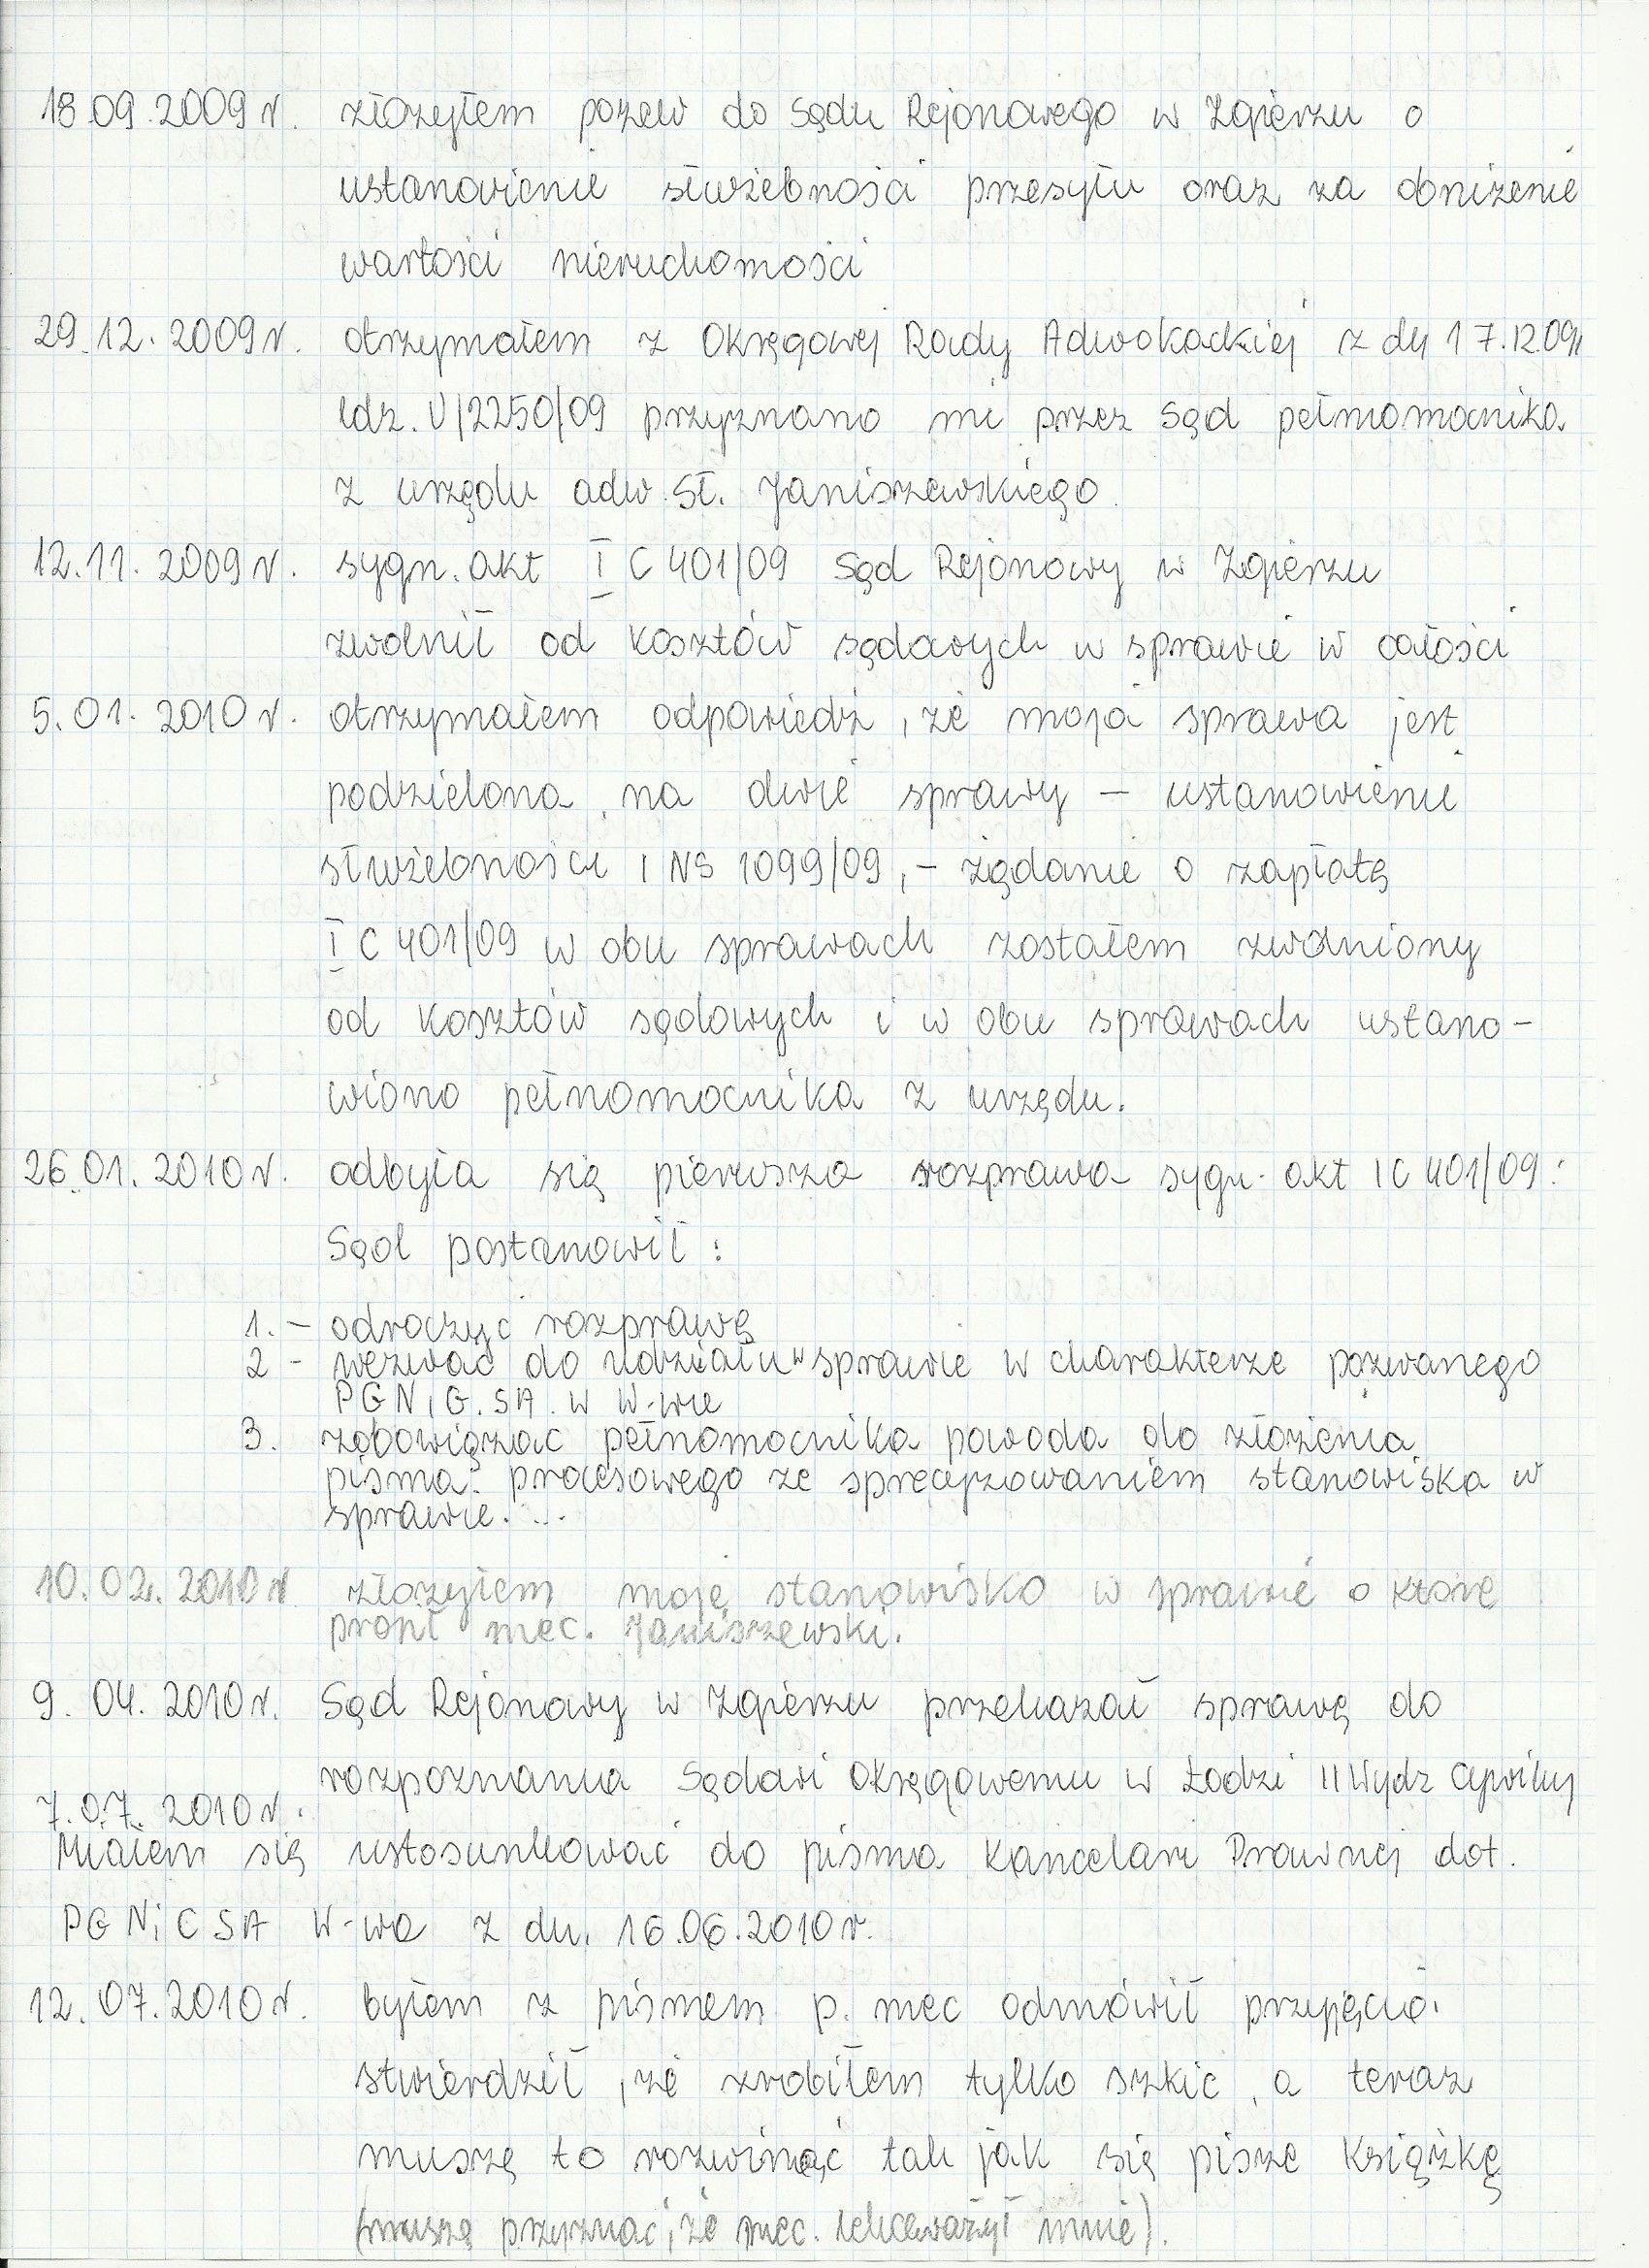 18.09.2009 r. złożyłem pozew do Sądu Rejonowego w Zgierzu o
ustanowienie służebności przesyłu oraz za obniżenie
wartości nieruchomości
29.12.2009 r. otrzymałem z Okręgowej Rady Adwokackiej z dn 17.12.09r
ldz. U/2250/09 przyznano mi przez Sąd pełnomocnika
z urzędu adw. St. Janiszewskiego.
12.11.2009 r. sygn. akt I C 401/09 Sąd Rejonowy w Zgierzu
zwolnił od kosztów sądowych w sprawie w całości
5.01.2010 r. otrzymałem odpowiedź, że moja sprawa jest
podzielona na dwie sprawy – ustanowienie
służebności I NS 1099/09, – żądanie o zapłatę
I C 401/09 w obu sprawach zostałem zwolniony
od kosztów sądowych i w obu sprawach ustano-
wiono pełnomocnika z urzędu.
26.01.2010 r. odbyła się pierwsza rozprawa sygn. akt I C 401/09:
Sąd postanowił:
1. – odroczyć rozprawę
2 – wezwać do udziału w sprawie w charakterze pozwanego
PGNiG. SA. w W-wie
3. zobowiązać pełnomocnika powoda do złożenia
pisma procesowego ze sprecyzowaniem stanowiska w
sprawie. ...
10.02.2010 r. złożyłem moje stanowisko w sprawie o które
prosił mec. Janiszewski.
9.04.2010 r. Sąd Rejonowy w Zgierzu przekazał sprawę do
rozpoznania Sądowi Okręgowemu w Łodzi II Wydz Cywilny
7.07.2010 r.
Miałem się ustosunkować do pisma Kancelarii Prawnej dot.
PGNiG SA W-wa z dn. 16.06.2010 r.
12.07.2010 r. byłem z pismem p. mec odmówił przyjęcia.
stwierdził, że zrobiłem tylko szkic, a teraz
muszę to rozwinąć tak jak się pisze książkę
(muszę przyznać, że mec. lekceważył mnie).